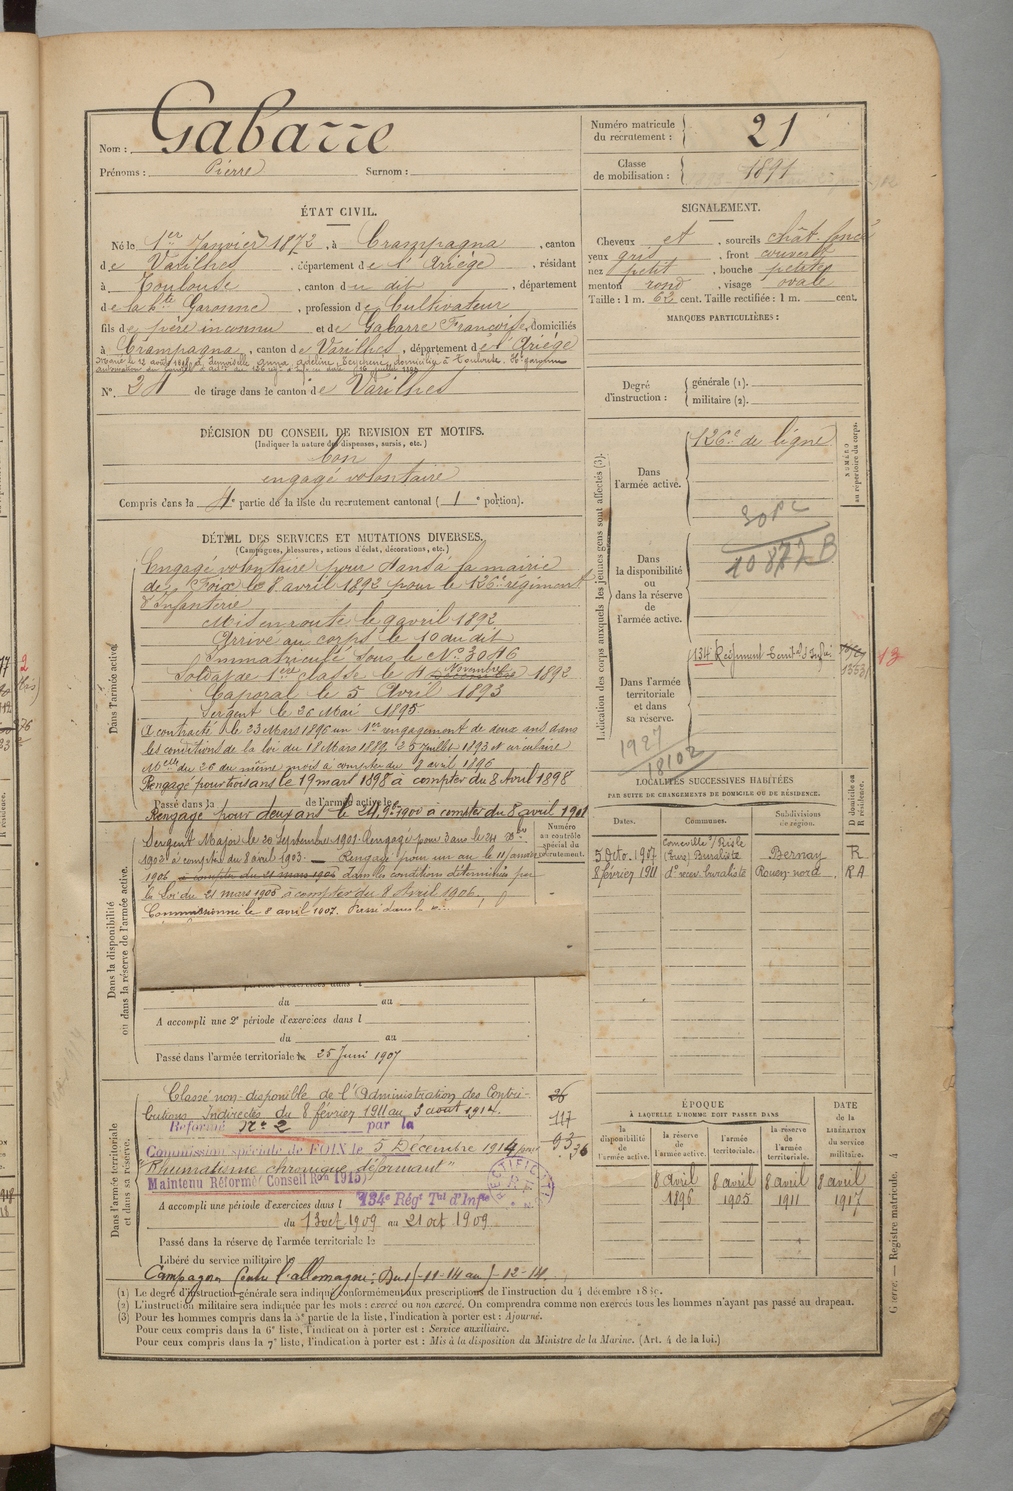 Nom : Gabarre
Prénoms : Pierre Surnom :
Numéro matricule du recrutement : 21
Classe de mobilisation : 1891
ÉTAT CIVIL.
Né le 1er Janvier 1872, à Crampagna, canton
de Varilhes, département de l'Ariège, résidant
à Toulouse, canton du dit, département
de la Hte Garonne, profession de Cultivateur
fils de père inconnu et de Gabarre Françoise, domiciliés
à Crampagna, canton de Varilhes, département de l'Ariège
N° 21 de tirage dans le canton de Varilhes
SIGNALEMENT.
Cheveux et, sourcils chât. foncé
yeux gris, front couvert
nez petit, bouche petite
menton rond, visage ovale
Taille : 1 m. 62 cent. Taille rectifiée : 1 m. cent.
MARQUES PARTICULIÈRES :
Degré d'instruction : générale (1).
militaire (2).
DÉCISION DU CONSEIL DE REVISION ET MOTIFS.
(Indiquer la nature des dispenses, sursis, etc.)
bon
engagé volontaire
Compris dans la 4e partie de la liste du recrutement cantonal (1e portion).
DÉTAIL DES SERVICES ET MUTATIONS DIVERSES.
(Campagnes, blessures, actions d'éclat, décorations, etc.)
Dans l'armée active.
Engagé volontaire pour 4 ans à la mairie
de Foix le 8 avril 1892 pour le 126e régiment
d'Infanterie
Mis en route le 9 avril 1892
Arrivé au corps le 10 du dit
Immatriculé sous le N° 3046
Soldat de 1ère classe le 4 Novembre 1892
Caporal le 5 Avril 1893
Sergent le 26 Mai 1895
A contracté le 23 Mars 1896 un 1er rengagement de deux ans dans
les conditions de la loi du 18 Mars 1889, 25 Juillet 1893 et circulaire
Melle du 26 du même mois à compter du 8 avril 1896
Rengagé pour trois ans le 19 mars 1898 à compter du 8 Avril 1898
Passé dans la de l'armée active le
Rengagé pour deux ans le 24 9bre 1900 à compter du 8 avril 1901
Numéro au contrôle spécial du recrutement.
Dans la disponibilité ou dans la réserve de l'armée active.
Sergent Major le 30 Septembre 1901. Rengagé pour 3 ans le 24 Xbre
1902 à compter du 8 avril 1903. — Rengagé pour un an le 11 janvier
1906 à compter du 21 mars 1906 dans les conditions déterminées par
la Loi du 21 mars 1905 à compter du 8 Avril 1906.
Commissionné le 8 avril 1907. Passé dans la
du au
A accompli une 2e période d'exercices dans l
du au
Passé dans l'armée territoriale le 25 Juin 1907
Dans l'armée territoriale et dans sa réserve.
Classé non-disponible de l'Administration des Contri-
butions Indirectes du 8 février 1911 au 3 août 1914.
Réformé n° 2 par la
Commission spéciale de FOIX le 5 Décembre 1914 pour
"Rhumatisme chronique déformant"
Maintenu Réformé (Conseil Ron 1915)
134e Régt Tal d'Infie
A accompli une période d'exercices dans l
du 13 oct 1909 au 21 oct 1909
Passé dans la réserve de l'armée territoriale le
Libéré du service militaire le
Campagne contre l'allemagne :
26
117
93
36
Indication des corps auxquels les jeunes gens sont affectés (3).
NUMÉRO au répertoire du corps.
Dans l'armée active.
126e de ligne
Dans la disponibilité ou dans la réserve de l'armée active.
Dans l'armée territoriale et dans sa réserve.
134 Régiment Territal d'Infrie
13
1927
18102
LOCALITÉS SUCCESSIVES HABITÉES
PAR SUITE DE CHANGEMENTS DE DOMICILE OU DE RÉSIDENCE.
Dates. Communes. Subdivisions de région. D domicile ou R résidence.
5 Octo. 1907 Corneville s/ Risle (Eure) Buraliste Bernay R
8 février 1911 do recev. buraliste Rouen nord RA
ÉPOQUE
À LAQUELLE L'HOMME DOIT PASSER DANS
DATE de la LIBÉRATION du service militaire.
la disponibilité de l'armée active. la réserve de l'armée active. l'armée territoriale. la réserve de l'armée territoriale.
8 avril 1896 8 avril 1905 8 avril 1911 8 avril 1917
Guerre. — Registre matricule. 4
(1) Le degré d'instruction générale sera indiqué conformément aux prescriptions de l'instruction du 4 décembre 1889.
(2) L'instruction militaire sera indiquée par les mots : exercé ou non exercé. On comprendra comme non exercés tous les hommes n'ayant pas passé au drapeau.
(3) Pour les hommes compris dans la 5e partie de la liste, l'indication à porter est : Ajourné.
Pour ceux compris dans la 6e liste, l'indication à porter est : Service auxiliaire.
Pour ceux compris dans la 7e liste, l'indication à porter est : Mis à la disposition du Ministre de la Marine. (Art. 4 de la loi.)